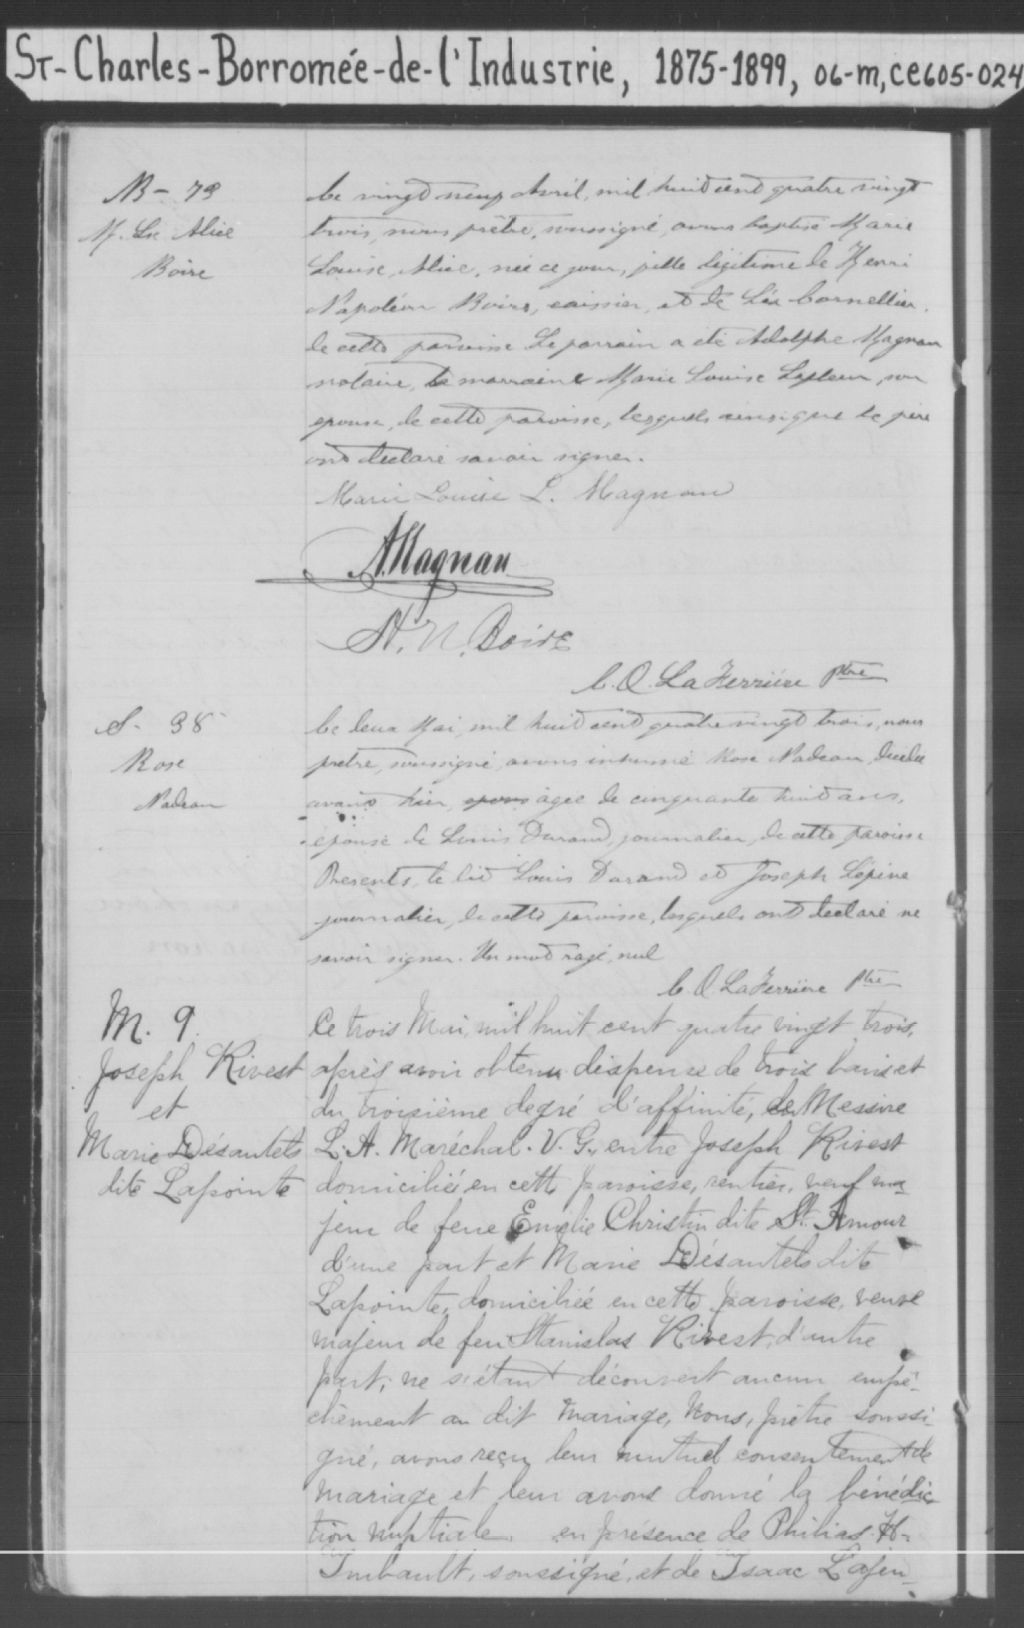 St-Charles-Borromée-de-l'Industrie, 1875-1899, 06-m, ce605-024
B - 79
M. Lse Alice
Boire
Le vingt neuf Avril, mil huit cent quatre vingt
trois, nous prêtre, soussigné, avons baptisé Marie
Louise, Alice, née ce jour, fille légitime de Henri
Napoléon Boire, caissier, et de Léa Cornellier,
de cette paroisse. Le parrain a été Adolphe Magnan
notaire, la marraine Marie Louise son
epouse, de cette paroisse, lesquels ainsi que le père
ont déclaré savoir signer.
Marie Louise L. Magnan
A. Magnan
H. N. Boire
C. O. LaFerrière Ptre
S - 38
Rose
Nadeau
Le deux Mai, mil huit cent quatre vingt trois, nous
prêtre, soussigné, avons inhumé Rose Nadeau, décédée
avant hier, agée de cinquante huit ans,
epouse de Louis Durand, journalier, de cette paroisse
Présents, le dit Louis Durand et Joseph Lépine
journalier, de cette paroisse, lesquels ont déclaré ne
savoir signer. Un mot rayé, nul
C. O. LaFerrière Ptre
M. 9.
Joseph Rivest
et
Marie Désautels
dite Lapointe
Ce trois Mai, mil huit cent quatre vingt trois,
après avoir obtenu dispense de trois bans et
du troisième degré d'affinité, de Messire
L. A. Maréchal. V. G., entre Joseph Rivest
domicilié en cette paroisse, rentier, veuf ma-
jeur de feue Emélie Christin dite St. Amour
d'une part et Marie Désautels dite
Lapointe, domiciliée en cette paroisse, veuve
majeur de feu Stanislas Rivest, d'autre
part, ne s'étant découvert aucun empê-
chement au dit mariage, Nous, prêtre soussi-
gné, avons reçu leur mutuel consentement de
mariage et leur avons donné la bénédic-
tion nuptiale en présence de Philias H-
Imbault, soussigné, et de Isaac Lajeu-